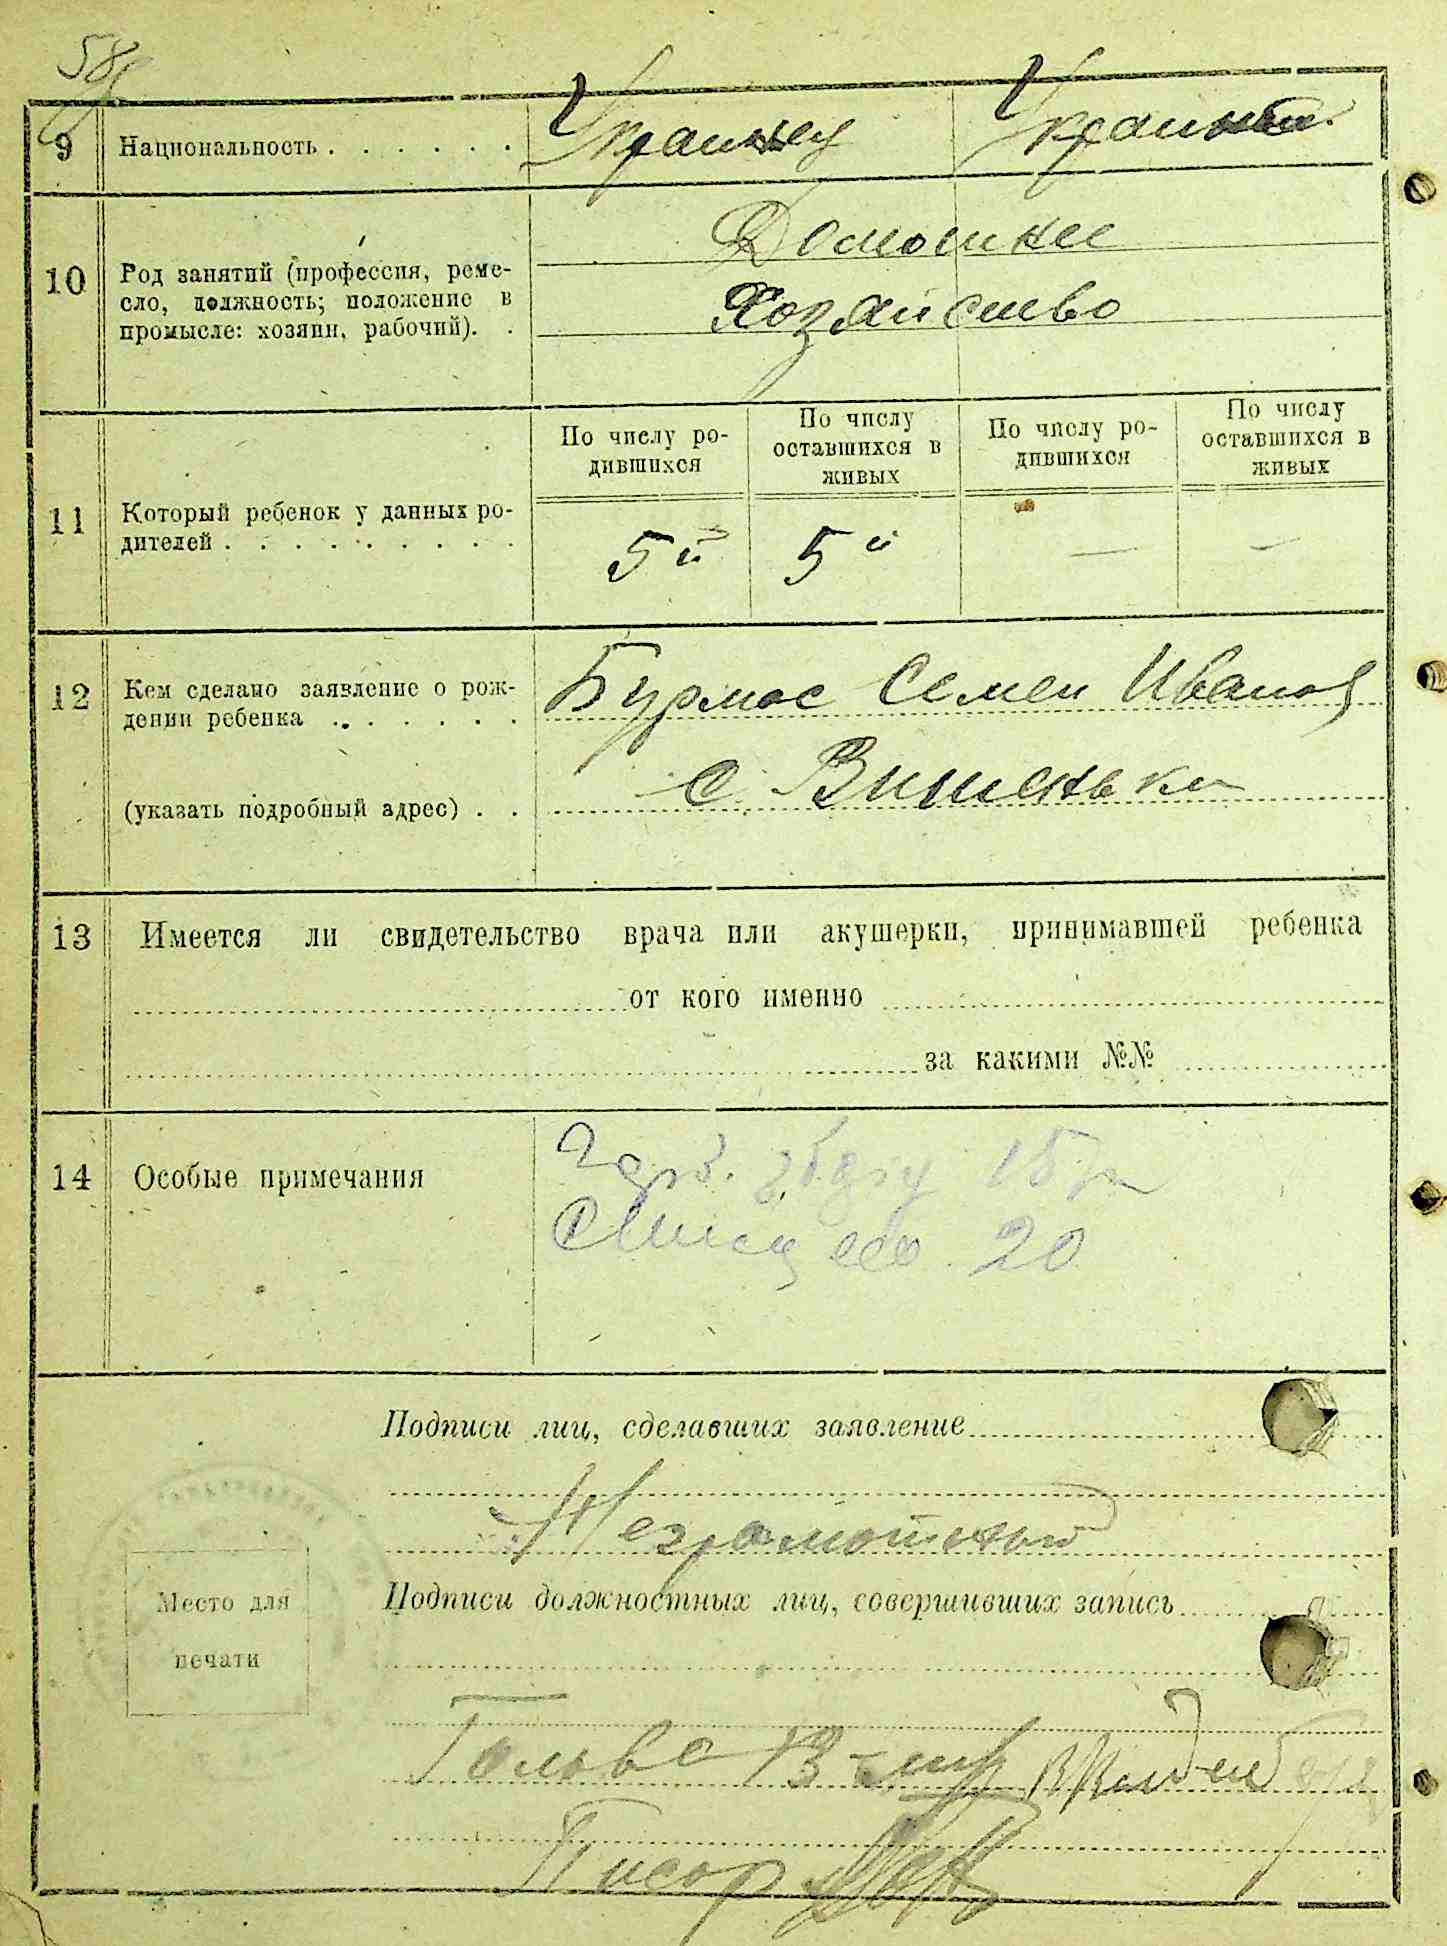 58
9 Национальность . . . . . . Украинец Украинка
10 Род занятий (профессия, реме-
сло, должность; положение в
промысле: хозяин, рабочий). .
Домошнее
Хозяйство
11 Который ребенок у данных ро-
дителей . . . . . . . . .
По числу ро-
дившихся
По числу
оставшихся в
живых
По числу ро-
дившихся
По числу
оставшихся в
живых
5й 5й — —
12 Кем сделано заявление о рож-
дении ребенка . . . . . .
Бурмос Семен Иванов
(указать подробный адрес) . .
с. Вишеньки
13 Имеется ли свидетельство врача или акушерки, принимавшей ребенка
от кого именно
за какими №№
14 Особые примечания
15
20
Подписи лиц, сделавших заявление
Неграмотный
Место для
печати
Подписи должностных лиц, совершивших запись
Голова В-
Писар